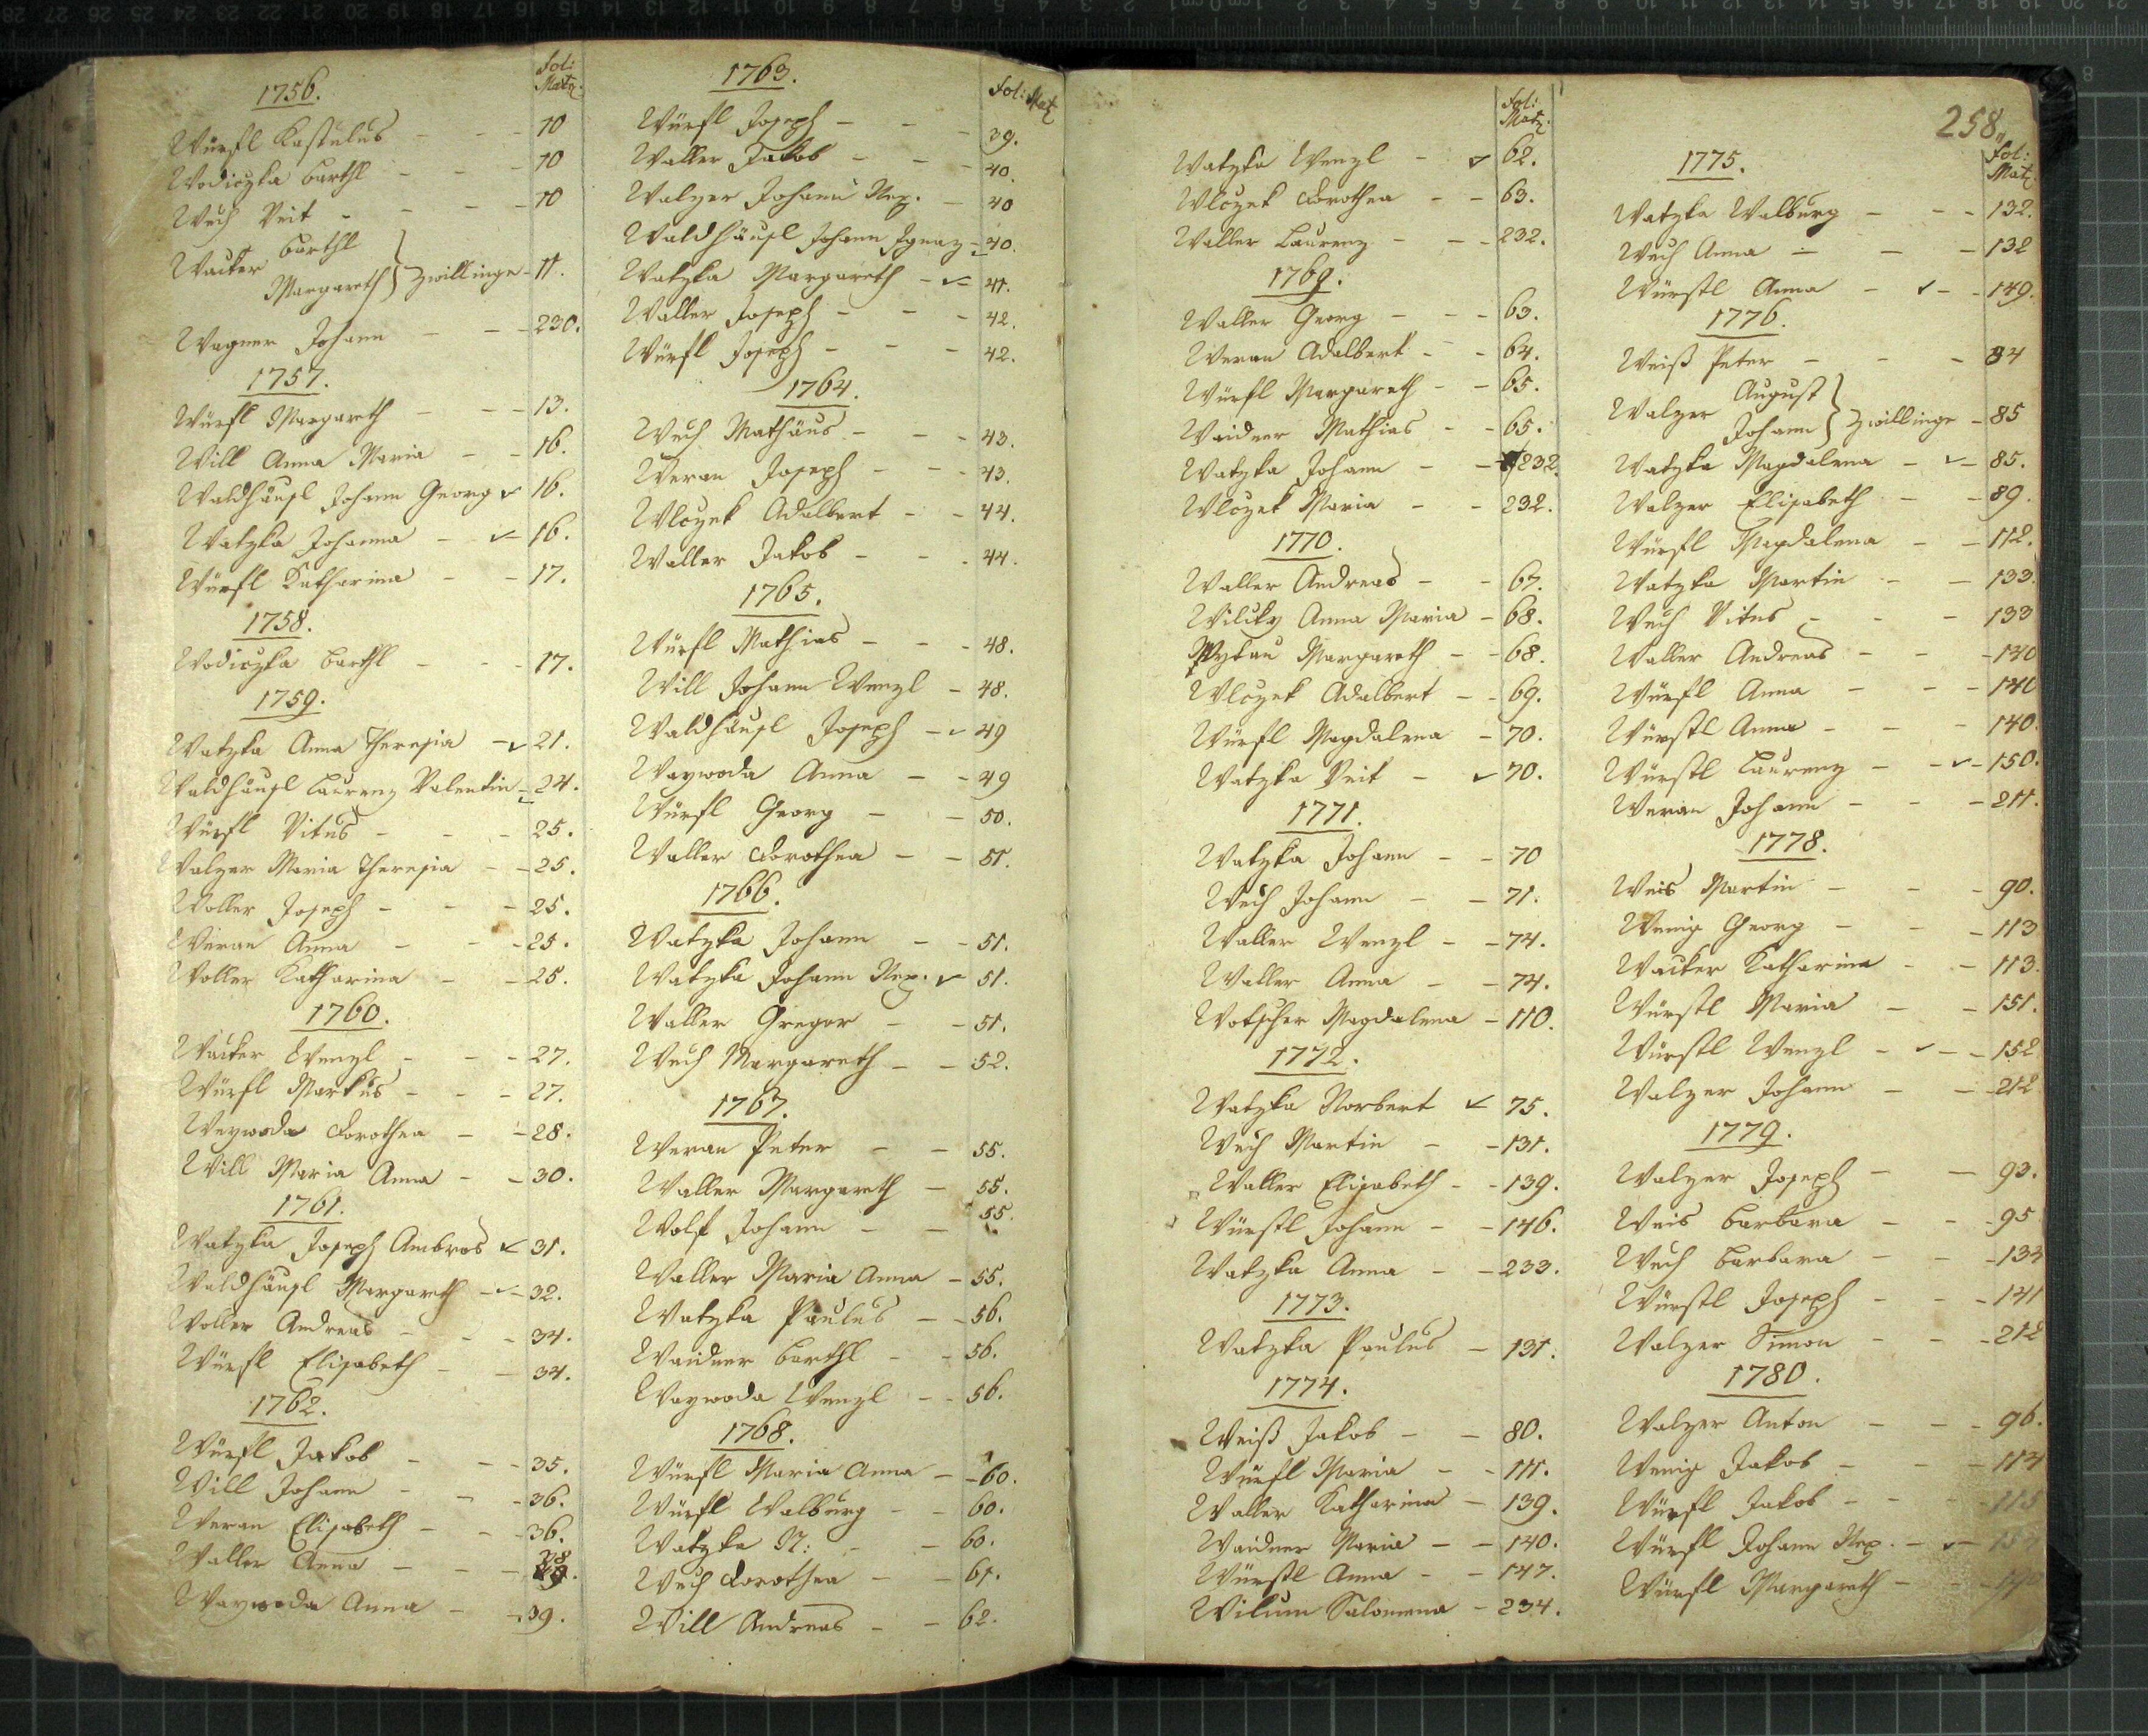 Fol: Matr.
1756.
Würfl Kastulus - - - 10
Wodiczka Barthl - - - 10
Wech Veit - - - 10
Wacker Barthl
Margareth } Zwillinge - 11.
Wagner Johann - - - 230.
1757.
Würfl Margareth - - - 13.
Will Anna Maria - - 16.
Waldhäusl Johann Georg ✓ 16.
Watzka Johanna - ✓ 16.
Würfl Katharina - - 17.
1758.
Wodiczka Barthl - - - 17.
1759.
Watzka Anna Theresia - ✓ 21.
Waldhäusl Laurenz Valentin - 24.
Würfl Vitus - - - 25.
Walzer Maria Theresia - - 25.
Woller Joseph - - - 25.
Weran Anna - - - 25.
Woller Katharina - - 25.
1760.
Wacker Wenzl - - - 27.
Würfl Markus - - - 27.
Weywoda Dorothea - - 28.
Will Maria Anna - - 30.
1761.
Watzka Joseph Ambros ✓ 31.
Waldhäusl Margareth - ✓ 32.
Woller Andreas - - - 34.
Würfl Elisabeth - - 34.
1762.
Würfl Jakob - - - 35.
Will Johann - - - 36.
Weran Elisabeth - - - 36.
Waller Anna - - - 38.
Waywoda Anna - - 39.
1763.
Fol: Mat
Würfl Joseph - - - 39.
Waller Jakob - - - 40.
Walzer Johann Nep. - 40
Waldhäusl Johann Ignaz - 40.
Watzka Margareth - ✓ 41.
Waller Joseph - - - 42.
Würfl Joseph - - - 42.
1764.
Wech Mathäus - - - 43.
Weran Joseph - - - 43.
Wlczek Adalbert - - 44.
Waller Jakob - - - 44.
1765.
Würfl Mathias - - - 48.
Will Johann Wenzl - 48.
Waldhäusl Joseph - ✓ 49
Waywoda Anna - - 49
Würfl Georg - - 50.
Waller Dorothea - - 51.
1766.
Watzka Johann - - 51.
Watzka Johann Nep. ✓ 51.
Waller Gregor - - 51.
Wech Margareth - - 52.
1767.
Weran Peter - - 55.
Waller Margareth - 55.
Wolf Johann - - 55.
Waller Maria Anna - 55.
Watzka Paulus - - 56.
Waidner Barthl - - 56.
Waywoda Wenzl - - 56.
1768.
Würfl Maria Anna - - 60.
Würfl Walburg - - 60.
Watzka N: - - 60.
Wech Dorothea - - 61.
Will Andreas - - 62.
Fol: Matr.
Watzka Wenzl - ✓ 62.
Wlczek Dorothea - - 63.
Waller Laurenz - - - 232.
1769.
Waller Georg - - - 63.
Weran Adalbert - - 64.
Würfl Margareth - - 65.
Waidner Mathias - - 65.
Watzka Johann - - 232.
Wlczek Maria - - 232.
1770.
Waller Andreas - - 67.
Wilcky Anna Maria - 68.
Wykau Margareth - - 68.
Wlczek Adalbert - - 69.
Würfl Magdalena - 70.
Watzka Veit - ✓ 70.
1771.
Watzka Johann - - 70
Wech Johann - - 71.
Waller Wenzl - - 74.
Waller Anna - - 74.
Wotscher Magdalena - 110.
1772.
Watzka Norbert ✓ 75.
Wech Martin - - 131.
Waller Elisabeth - - 139.
Würstl Johann - - 146.
Watzka Anna - - 233.
1773.
Watzka Paulus - 131.
1774.
Weiß Jakob - - 80.
Würfl Maria - - 111.
Waller Katharina - 139.
Waidner Maria - - 140.
Würstl Anna - - 147.
Salomena - 234.
258.
Fol: Mat
1775.
Watzka Walburg - - - 132.
Wech Anna - - - 132
Würstl Anna - ✓ - - 149.
1776.
Weiß Peter - - - 84
Walzer August
Johann } Zwillinge - 85
Watzka Magdalena - ✓ - 85.
Walzer Elisabeth - - 89.
Würfl Magdalena - - 112.
Watzka Martin - - 133.
Wech Vitus - - - 133
Waller Andreas - - - 140
Würfl Anna - - - 140
Würstl Anna - - - 140.
Würstl Laurenz - - ✓ - 150.
Weran Johann - - - 211.
1778.
Weis Martin - - - 90.
Wenig Georg - - - 113
Wacker Katharina - - 113.
Würstl Maria - - 151.
Würstl Wenzl - ✓ - - 152
Walzer Johann - - - 212
1779.
Walzer Joseph - - 93.
Weis Barbara - - - 95
Wech Barbara - - - 134
Würstl Joseph - - - 141
Walzer Simon - - - 212
1780.
Walzer Anton - - - 96.
Wenig Jakob - - - 114
Würfl Jakob - - - 115
Würfl Johann Nep. - ✓ -
Würfl Margareth - - -